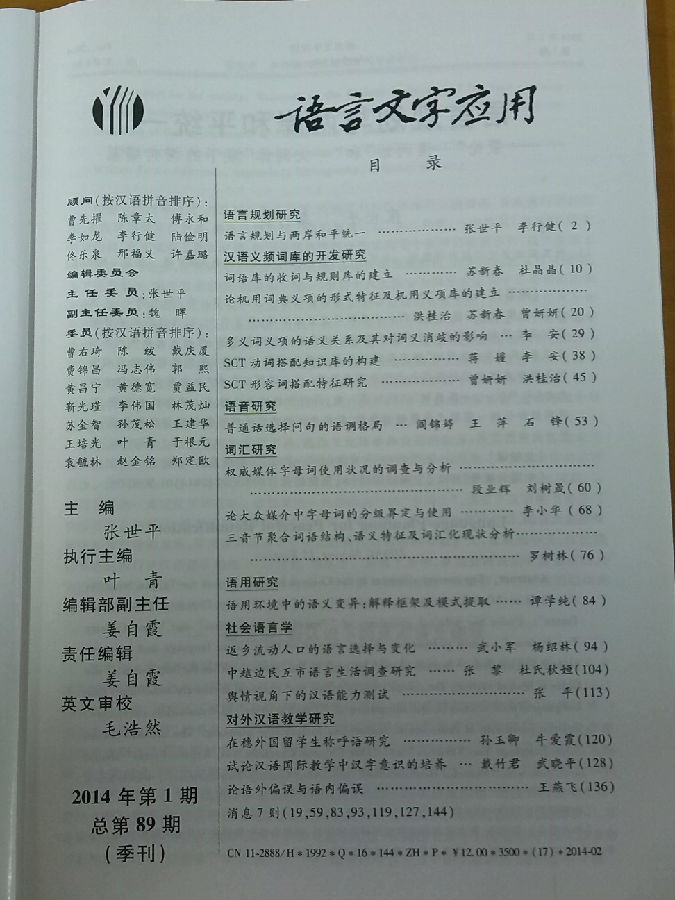 语言文字应用
目 录
顾问(按汉语拼音排序):
曹先擢 陈章太 傅永和
李如龙 李行健 陆俭明
佟乐泉 邢福义 许嘉璐
编辑委员会
主任委员:张世平
副主任委员:魏 晖
委员(按汉语拼音排序):
曹右琦 陈 敏 戴庆厦
费锦昌 冯志伟 郭 熙
黄昌宁 黄德宽 贾益民
靳光瑾 李伟国 林茂灿
苏金智 孙茂松 王建华
王培光 叶 青 于根元
袁毓林 赵金铭 郑定欧
主 编
张世平
执行主编
叶 青
编辑部副主任
姜自霞
责任编辑
姜自霞
英文审校
毛浩然
2014 年第 1 期
总第 89 期
(季刊)
语言规划研究
语言规划与两岸和平统一 ………… 张世平 李行健( 2 )
汉语义频词库的开发研究
词语库的收词与规则库的建立 ………… 苏新春 杜晶晶( 10 )
论机用词典义项的形式特征及机用义项库的建立 …………
………… 洪桂治 苏新春 曾妍妍( 20 )
多义词义项的语义关系及其对词义消歧的影响 … 李 安( 29 )
SCT 动词搭配知识库的构建 ………… 蒋 媛 李 安( 38 )
SCT 形容词搭配特征研究 ………… 曾妍妍 洪桂治( 45 )
语音研究
普通话选择问句的语调格局 … 阎锦婷 王 萍 石 锋( 53 )
词汇研究
权威媒体字母词使用状况的调查与分析 …………
………… 段业辉 刘树晟( 60 )
论大众媒介中字母词的分级界定与使用 ………… 李小华( 68 )
三音节聚合词语结构、语义特征及词汇化现状分析…………
………… 罗树林( 76 )
语用研究
语用环境中的语义变异:解释框架及模式提取 …… 谭学纯( 84 )
社会语言学
返乡流动人口的语言选择与变化 ……… 武小军 杨绍林( 94 )
中越边民互市语言生活调查研究 …… 张 黎 杜氏秋姮(104)
舆情视角下的汉语能力测试 ………… 张 平(113)
对外汉语教学研究
在穗外国留学生称呼语研究 ………… 孙玉卿 牛爱霞(120)
试论汉语国际教学中汉字意识的培养 … 戴竹君 武晓平(128)
论语外偏误与语内偏误 ………… 王燕飞(136)
消息 7 则(19,59,83,93,119,127,144)
CN 11-2888/H * 1992 * Q * 16 * 144 * ZH * P * ￥12.00 * 3500 * (17) * 2014-02